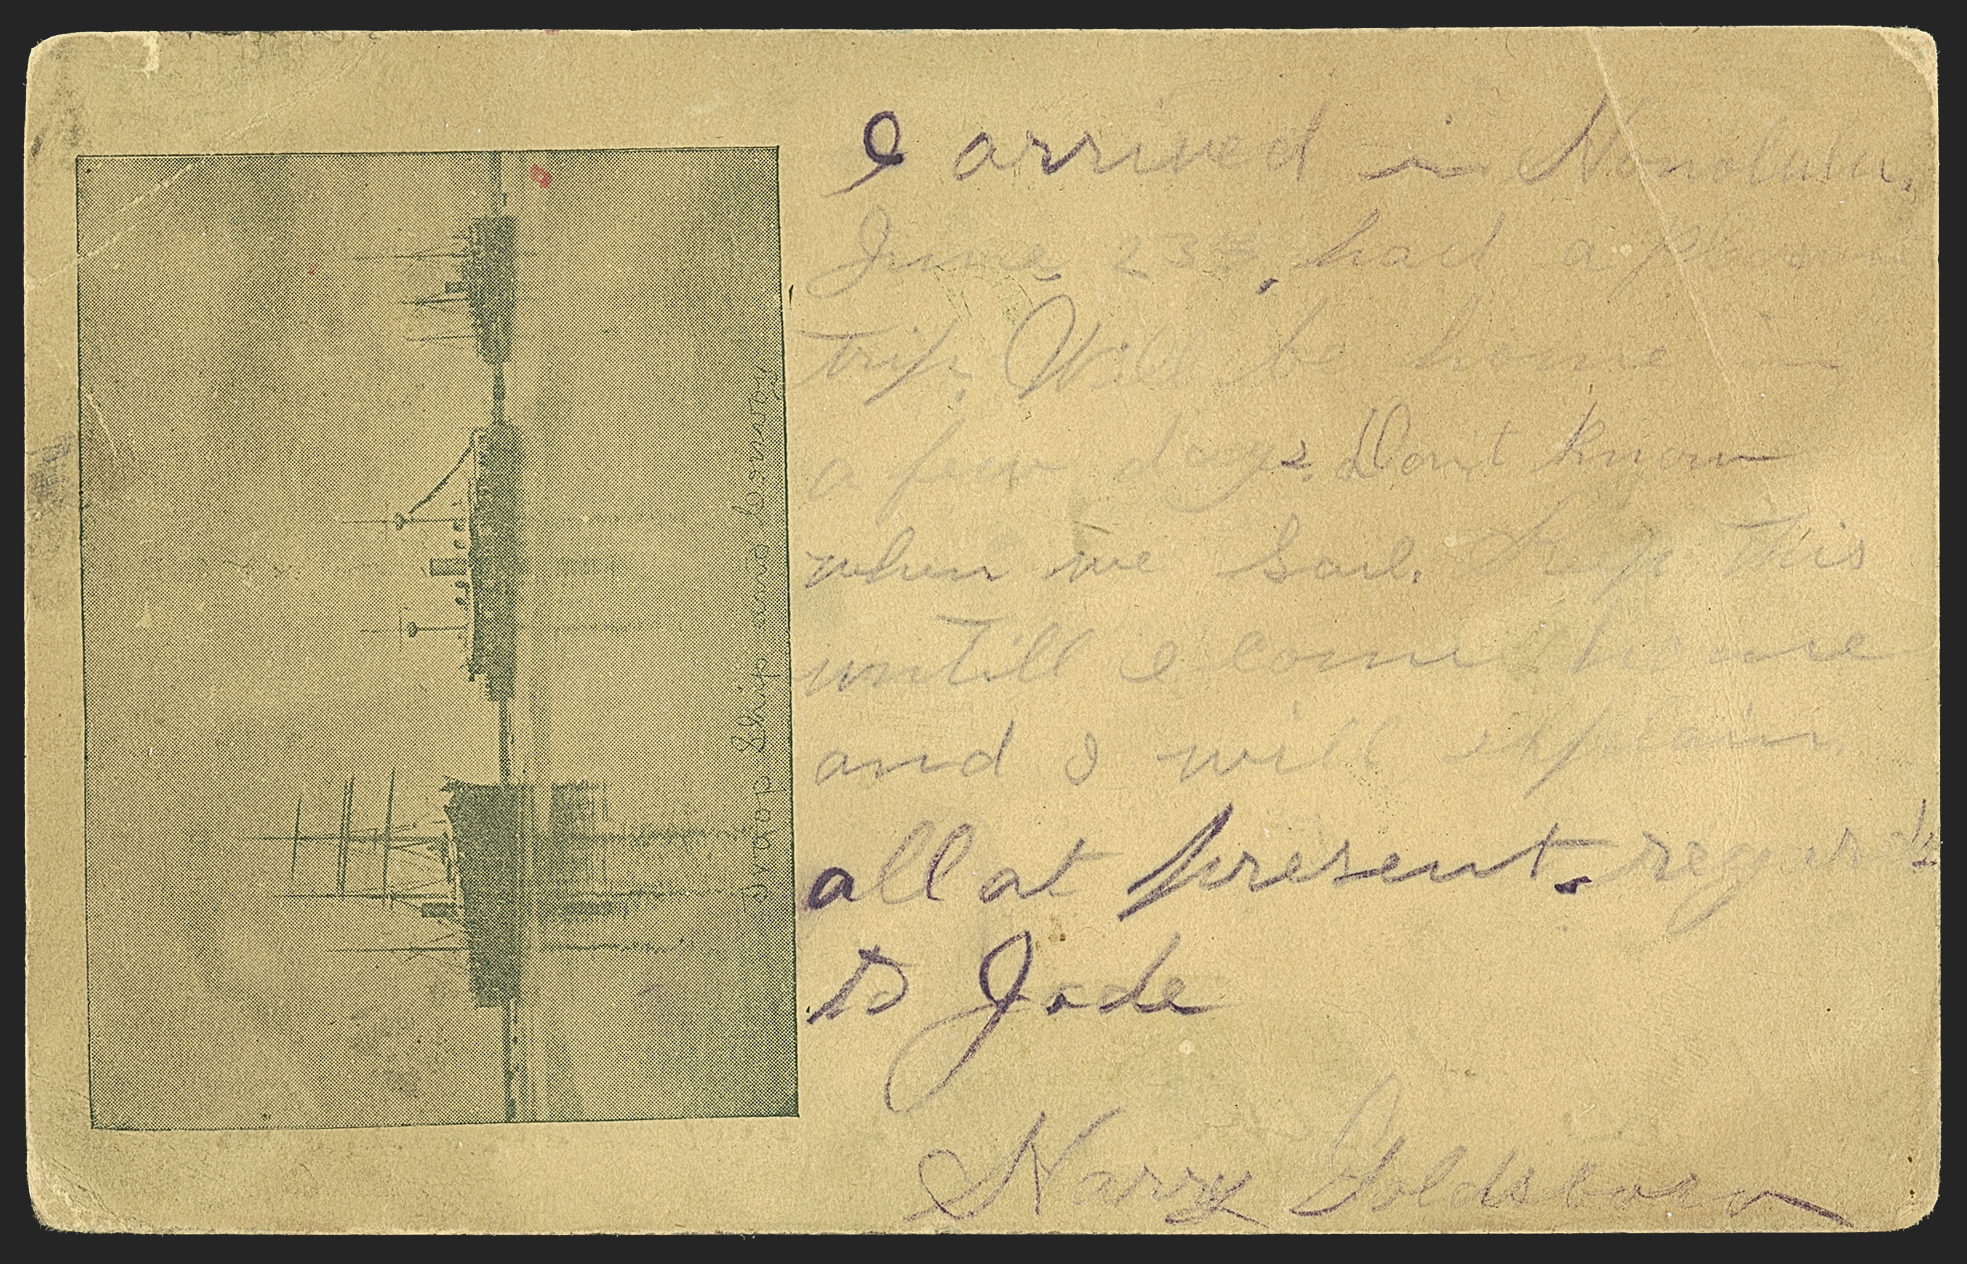 Troop Ship and Convoy
I arrived in Honolulu,
June 23, had a pleasant
trip. Will be home in
a few days. Don't know
when we sail. Keep this
untill I come home
and I will explain
all at present. regards
to Jade
Harry Goldsboro